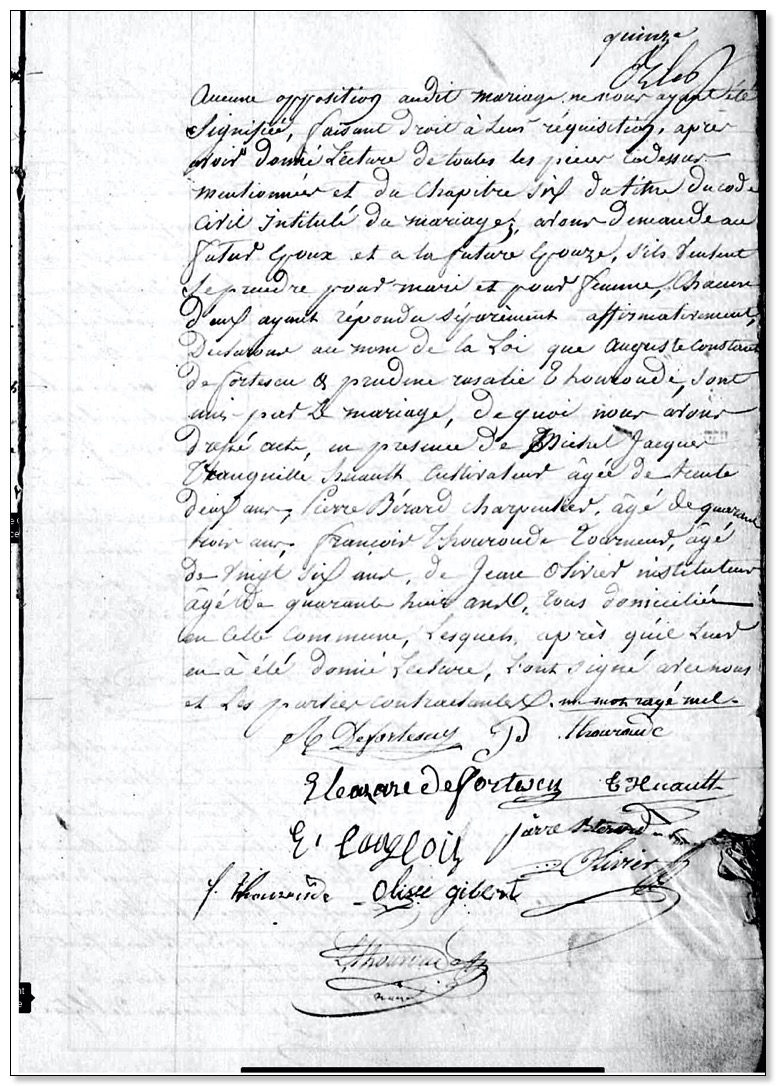 quinze
Aucune opposition audit mariage ne nous ayant été
Signifiée, faisant droit à Leur réquisition, après
avoir donné Lecture de toutes les pièces cydessus
mentionnées et du Chapitre six du titre du code
Civil Intitulé du mariage, avons demandé au
futur Epoux et a la future Epouze, s'ils veulent
Se prendre pour mari et pour femme, Chacun
d'eux ayant répondu séparément affirmativement,
Declarons au nom de la Loi que auguste constant
de fortescu & prudine rosalie Thouroude, sont
unis par Le mariage, de quoi nous avons
dressé acte, en presence de Michel Jacques
Tranquille huault Cultivateur âgée de trente
deux ans, Pierre Bérard charpentier, âgé de quarante
trois ans, françois Thouroude Tourneur, âgé
de vingt six ans, de Jean Olivier instituteur
âgé De quarante huit ans, tous domiciliés
en Cette Commune, Lesquels, après qu'il Leur
en à été donné Lecture, L'ont signé avec nous
et Les parties contractantes. un mot rayé nul.
A Defortescu P thouroude
Eleazare de fortescu T Huault
E. Langlois pierre Berard
Olivier
f. thouroude Olisée gibert
Thouroude